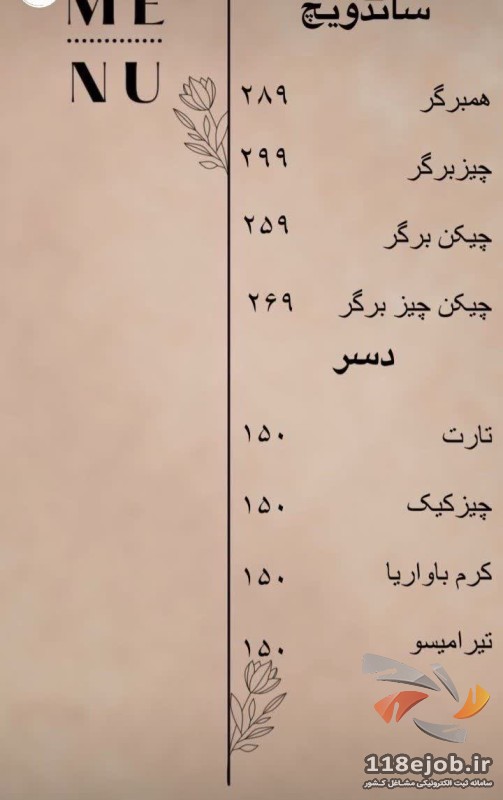 ME
NU
ساندویچ
همبرگر ۲۸۹
چیزبرگر ۲۹۹
چیکن برگر ۲۵۹
چیکن چیز برگر ۲۶۹
دسر
تارت ۱۵۰
چیزکیک ۱۵۰
کرم باواریا ۱۵۰
تیرامیسو ۱۵۰
118ejob.ir
سامانه ثبت الکترونیکی مشاغل کشور